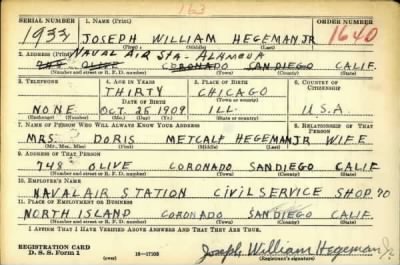 163
SERIAL NUMBER 1. NAME (Print) ORDER NUMBER
1933 JOSEPH WILLIAM HEGEMAN JR 1640
(First) (Middle) (Last)
NAVAL AIR STA- ALAMEDA
2. ADDRESS (Print)
748 OLIVE CORONADO SAN DIEGO CALIF.
(Number and street or R. F. D. number) (Town) (County) (State)
3. TELEPHONE 4. AGE IN YEARS 5. PLACE OF BIRTH 6. COUNTRY OF CITIZENSHIP
THIRTY CHICAGO
DATE OF BIRTH (Town or county)
NONE OCT 25 1909 ILL. U.S.A
(Exchange) (Number) (Mo.) (Day) (Yr.) (State or country)
7. NAME OF PERSON WHO WILL ALWAYS KNOW YOUR ADDRESS 8. RELATIONSHIP OF THAT PERSON
MRS. DORIS METCALF HEGEMAN JR WIFE
(Mr., Mrs., Miss) (First) (Middle) (Last)
9. ADDRESS OF THAT PERSON
748 OLIVE CORONADO SAN DIEGO CALIF
(Number and street or R. F. D. number) (Town) (County) (State)
10. EMPLOYER'S NAME
NAVAL AIR STATION CIVIL SERVICE SHOP 70
11. PLACE OF EMPLOYMENT OR BUSINESS
NORTH ISLAND CORONADO SAN DIEGO CALIF.
(Number and street or R. F. D. number) (Town) (County) (State)
I AFFIRM THAT I HAVE VERIFIED ABOVE ANSWERS AND THAT THEY ARE TRUE.
REGISTRATION CARD
D. S. S. Form 1 (over) 16—17105 Joseph William Hegeman Jr
(Registrant's signature)